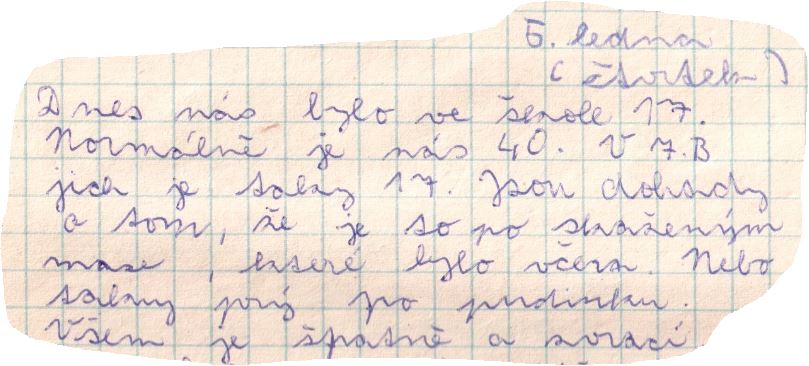 5. ledna
(čtvrtek)
Dnes nás bylo ve škole 17.
Normálně je nás 40. V 7.B
jich je taky 17. Jsou dohady
o tom, že je to po zkaženým
mase, které bylo včera. Nebo
taky prý po pudinku.
Všem je špatně a zvrací